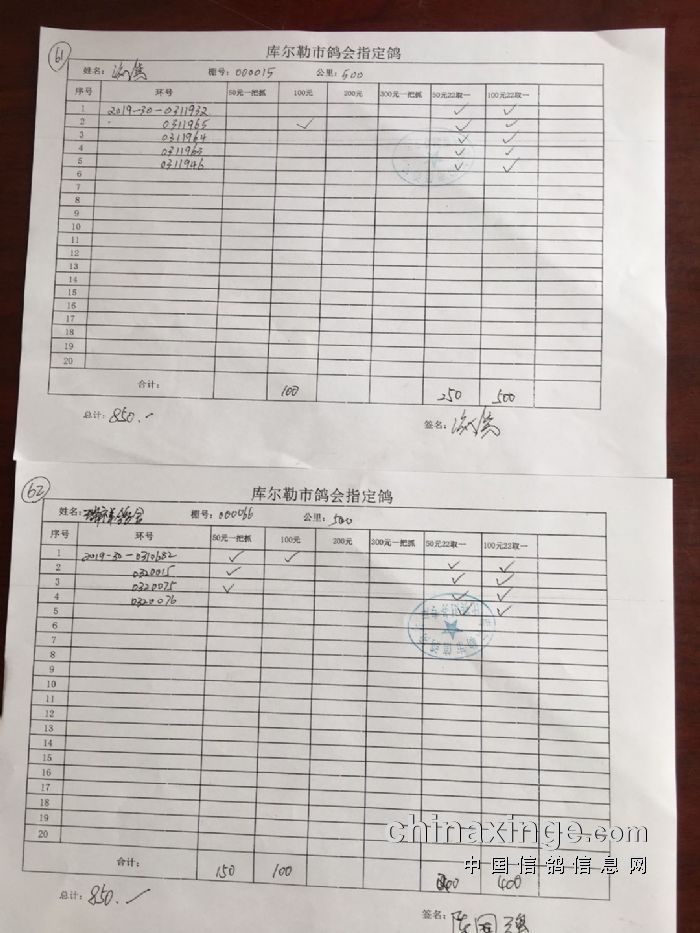 61
库尔勒市鸽会指定鸽
姓名： 棚号：000015 公里：500
序号 环号 50元一把抓 100元 200元 300元一把抓 50元22取一 100元22取一
1 2019-30-0311932 ✓ ✓
2 0311965 ✓ ✓ ✓
3 0311964 ✓ ✓
4 0311963 ✓ ✓
5 0311946 ✓ ✓
6
7
8
9
10
11
12
13
14
15
16
17
18
19
20
合计： 100 250 500
总计：850.- 签名：
62
库尔勒市鸽会指定鸽
姓名： 棚号：000066 公里：500
序号 环号 50元一把抓 100元 200元 300元一把抓 50元22取一 100元22取一
1 2019-30-0310682 ✓ ✓
2 0320015 ✓ ✓ ✓
3 0320075 ✓ ✓ ✓
4 0320076 ✓ ✓
5 ✓ ✓
6
7
8
9
10
11
12
13
14
15
16
17
18
19
20
合计： 150 100 400
总计：850.- 签名：
chinaxinge.com
中国信鸽信息网